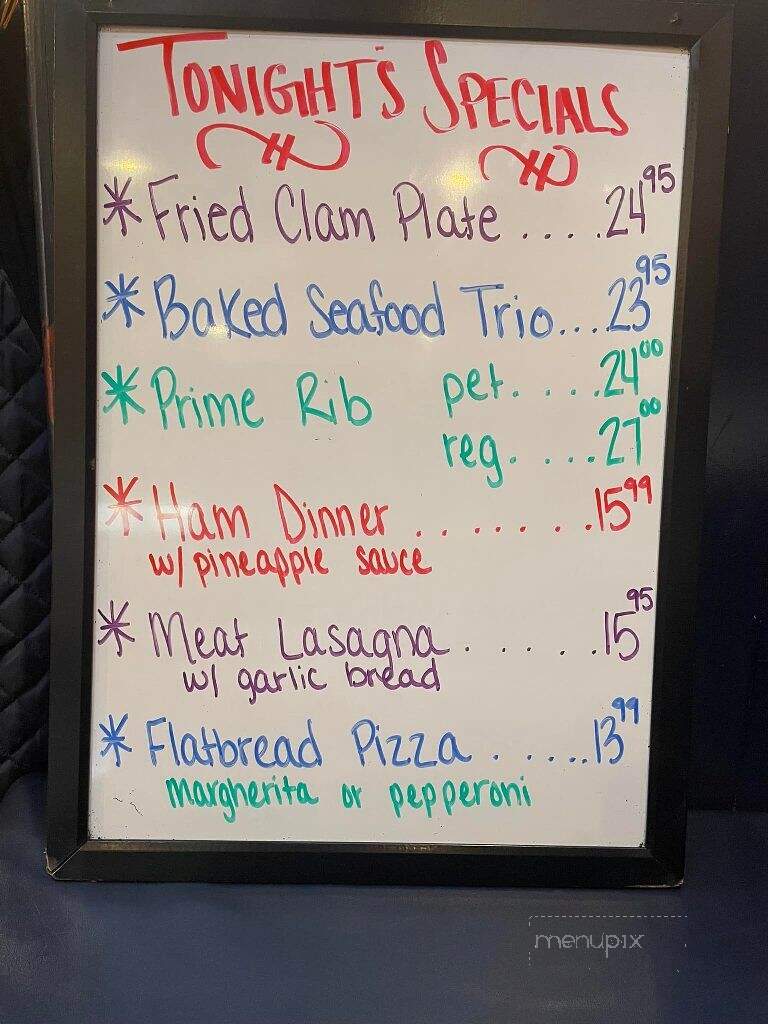 TONIGHT'S SPECIALS
* Fried Clam Plate ....24 95
* Baked Seafood Trio...23 95
* Prime Rib pet.....24 00
reg.....27 00
* Ham Dinner .......15 99
w/ pineapple sauce
* Meat Lasagna ......15 95
w/ garlic bread
* Flatbread Pizza ......13 99
margherita or pepperoni
menupix